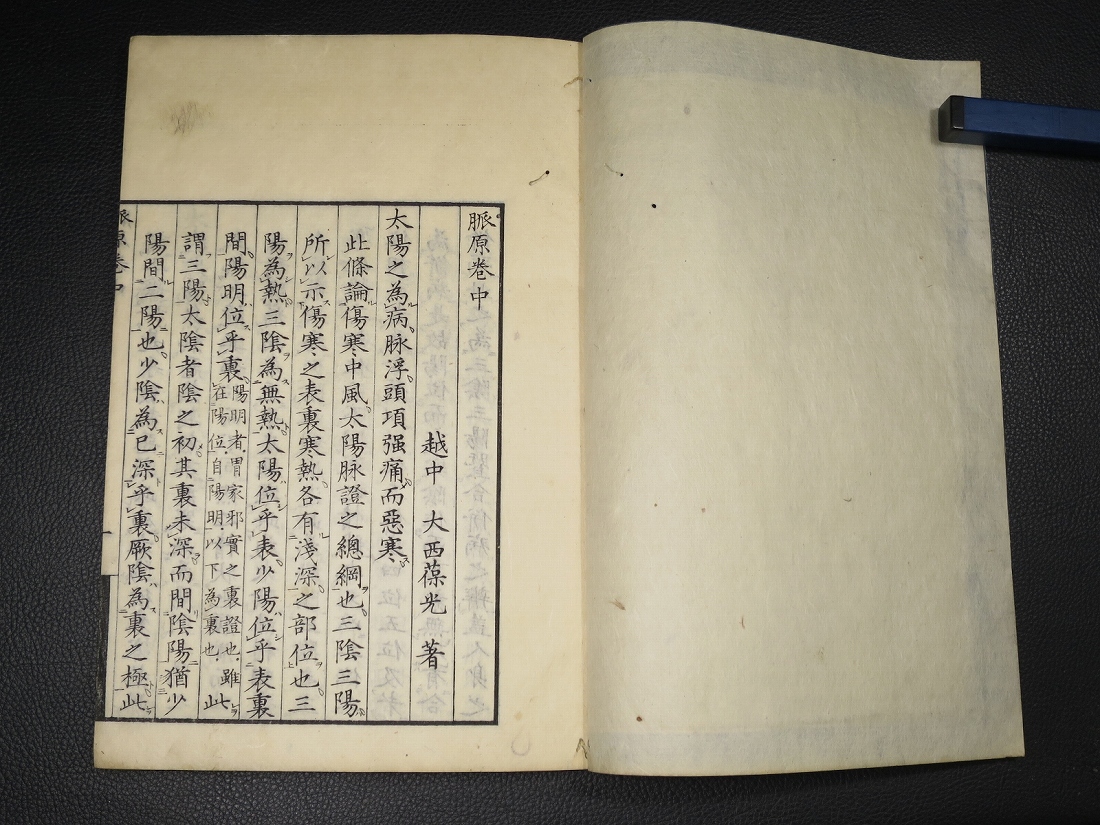 脈原卷中
越中 大西葆光 著
太陽之為病脉浮頭項强痛而惡寒
此條論傷寒中風太陽脉證之總綱也三陰三陽
所以示傷寒之表裏寒熱各有淺深之部位也三
陽為熱三陰為無熱太陽位乎表少陽位乎表裏
間陽明位乎裏陽明者胃家邪實之裏證也雖
在陽位自陽明以下為裏也此
謂三陽太陰者陰之初其裏未深而間陰陽猶少
陽間二陽也少陰為已深乎裏厥陰為裏之極此
脈原卷中